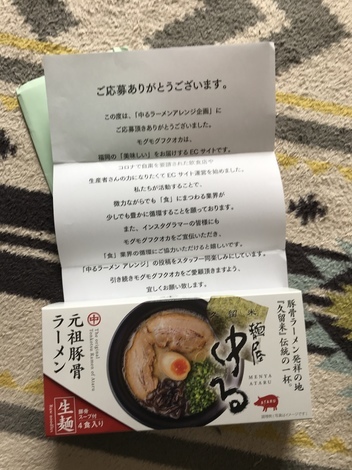 ご応募ありがとうございます。
この度は、「中るラーメンアレンジ企画」に
ご応募頂きありがとうございました。
モグモグフクオカは、
福岡の「美味しい」をお届けするECサイトです。
コロナで自粛を要請された飲食店や
生産者さんの力になりたくてECサイト運営を始めました。
私たちが活動することで、
微力ながらでも「食」にまつわる業界が
少しでも豊かに循環することを願っております。
また、インスタグラマーの皆様にも
モグモグフクオカをご宣伝いただき、
「食」業界の循環にご協力いただけると嬉しいです。
「中るラーメン アレンジ」の投稿をスタッフ一同楽しみにしています。
引き続きモグモグフクオカをご愛顧頂きますよう、
宜しくお願い致します。
豚骨ラーメン発祥の地
『久留米』伝統の一杯。
久留米
麺屋
中る
MENYA
ATARU
ATARU
中
The original
Tonkotsu Ramen of Ataru
元祖豚骨
ラーメン
生麺
Raw noodles
豚骨
スープ付
4食入り